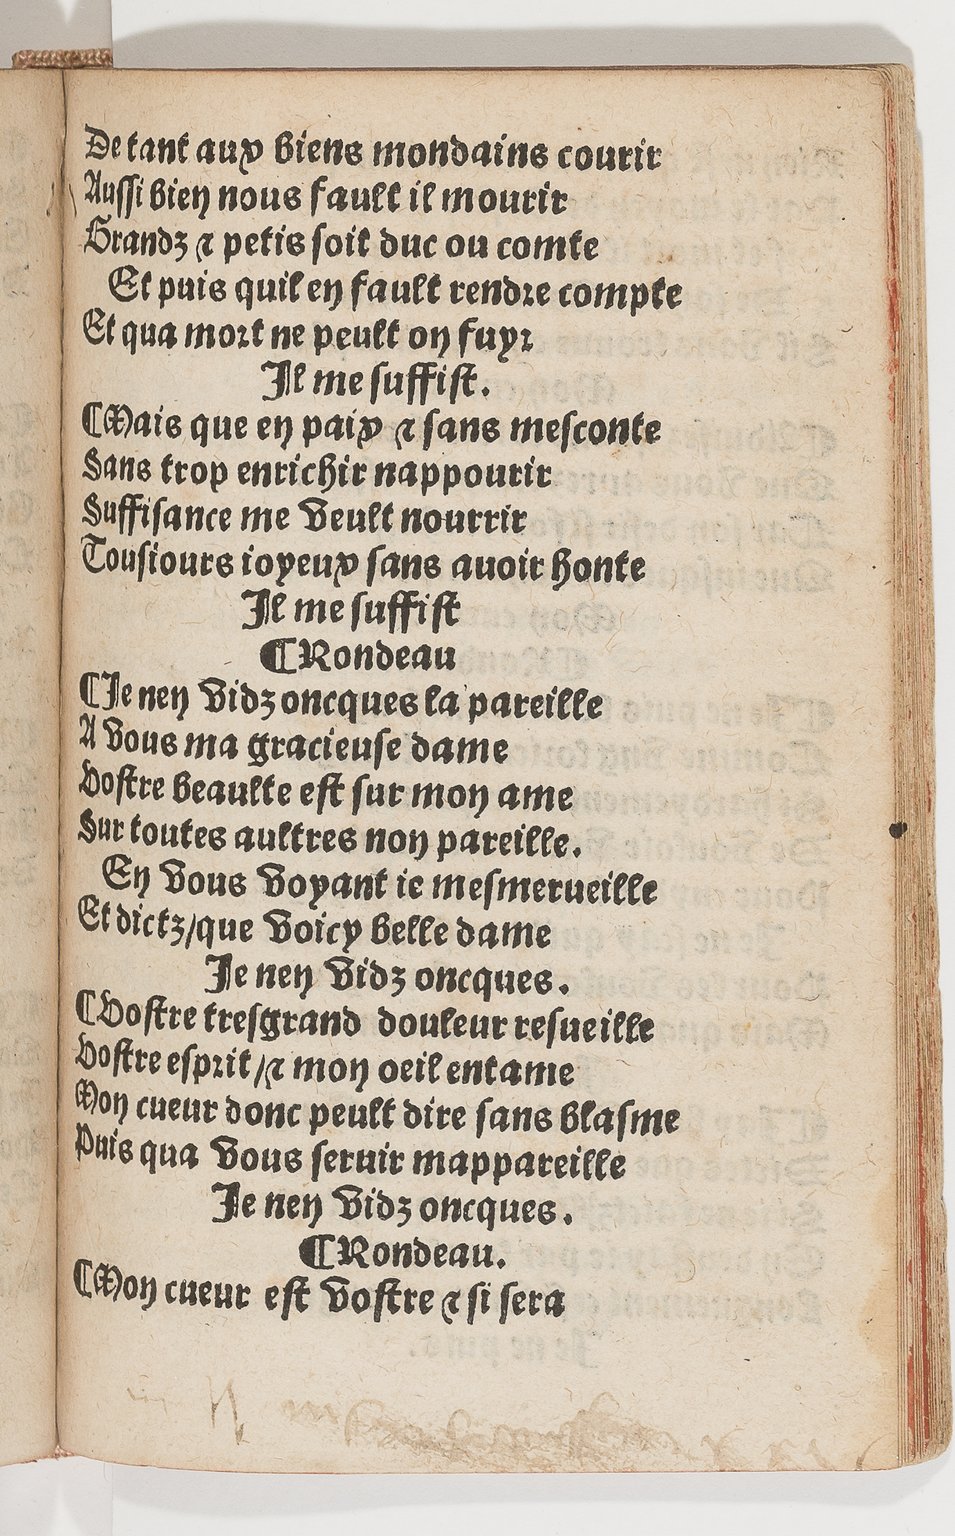 De tant aux biens mondains courir
Aussi bien nous fault il mourir
Grandz ⁊ petis soit duc ou comte
Et puis quil en fault rendre compte
Et qua mort ne peult on fuyr
Il me suffist.
¶Mais que en paix ⁊ sans mesconte
Sans trop enrichir nappourir
Suffisance me veult nourrir
Tousiours ioyeux sans auoir honte
Il me suffist
¶Rondeau
¶Je nen vidz oncques la pareille
A vous ma gracieuse dame
Vostre beaulte est sur mon ame
Sur toutes aultres non pareille.
En vous voyant ie mesmerueille
Et dictz/que voicy belle dame
Je nen vidz oncques.
¶Vostre tresgrand douleur resueille
Vostre esprit/⁊ mon oeil entame
Mon cueur donc peult dire sans blasme
Puis qua vous seruir mappareille
Je nen vidz oncques.
¶Rondeau.
¶Mon cueur est vostre ⁊ si sera